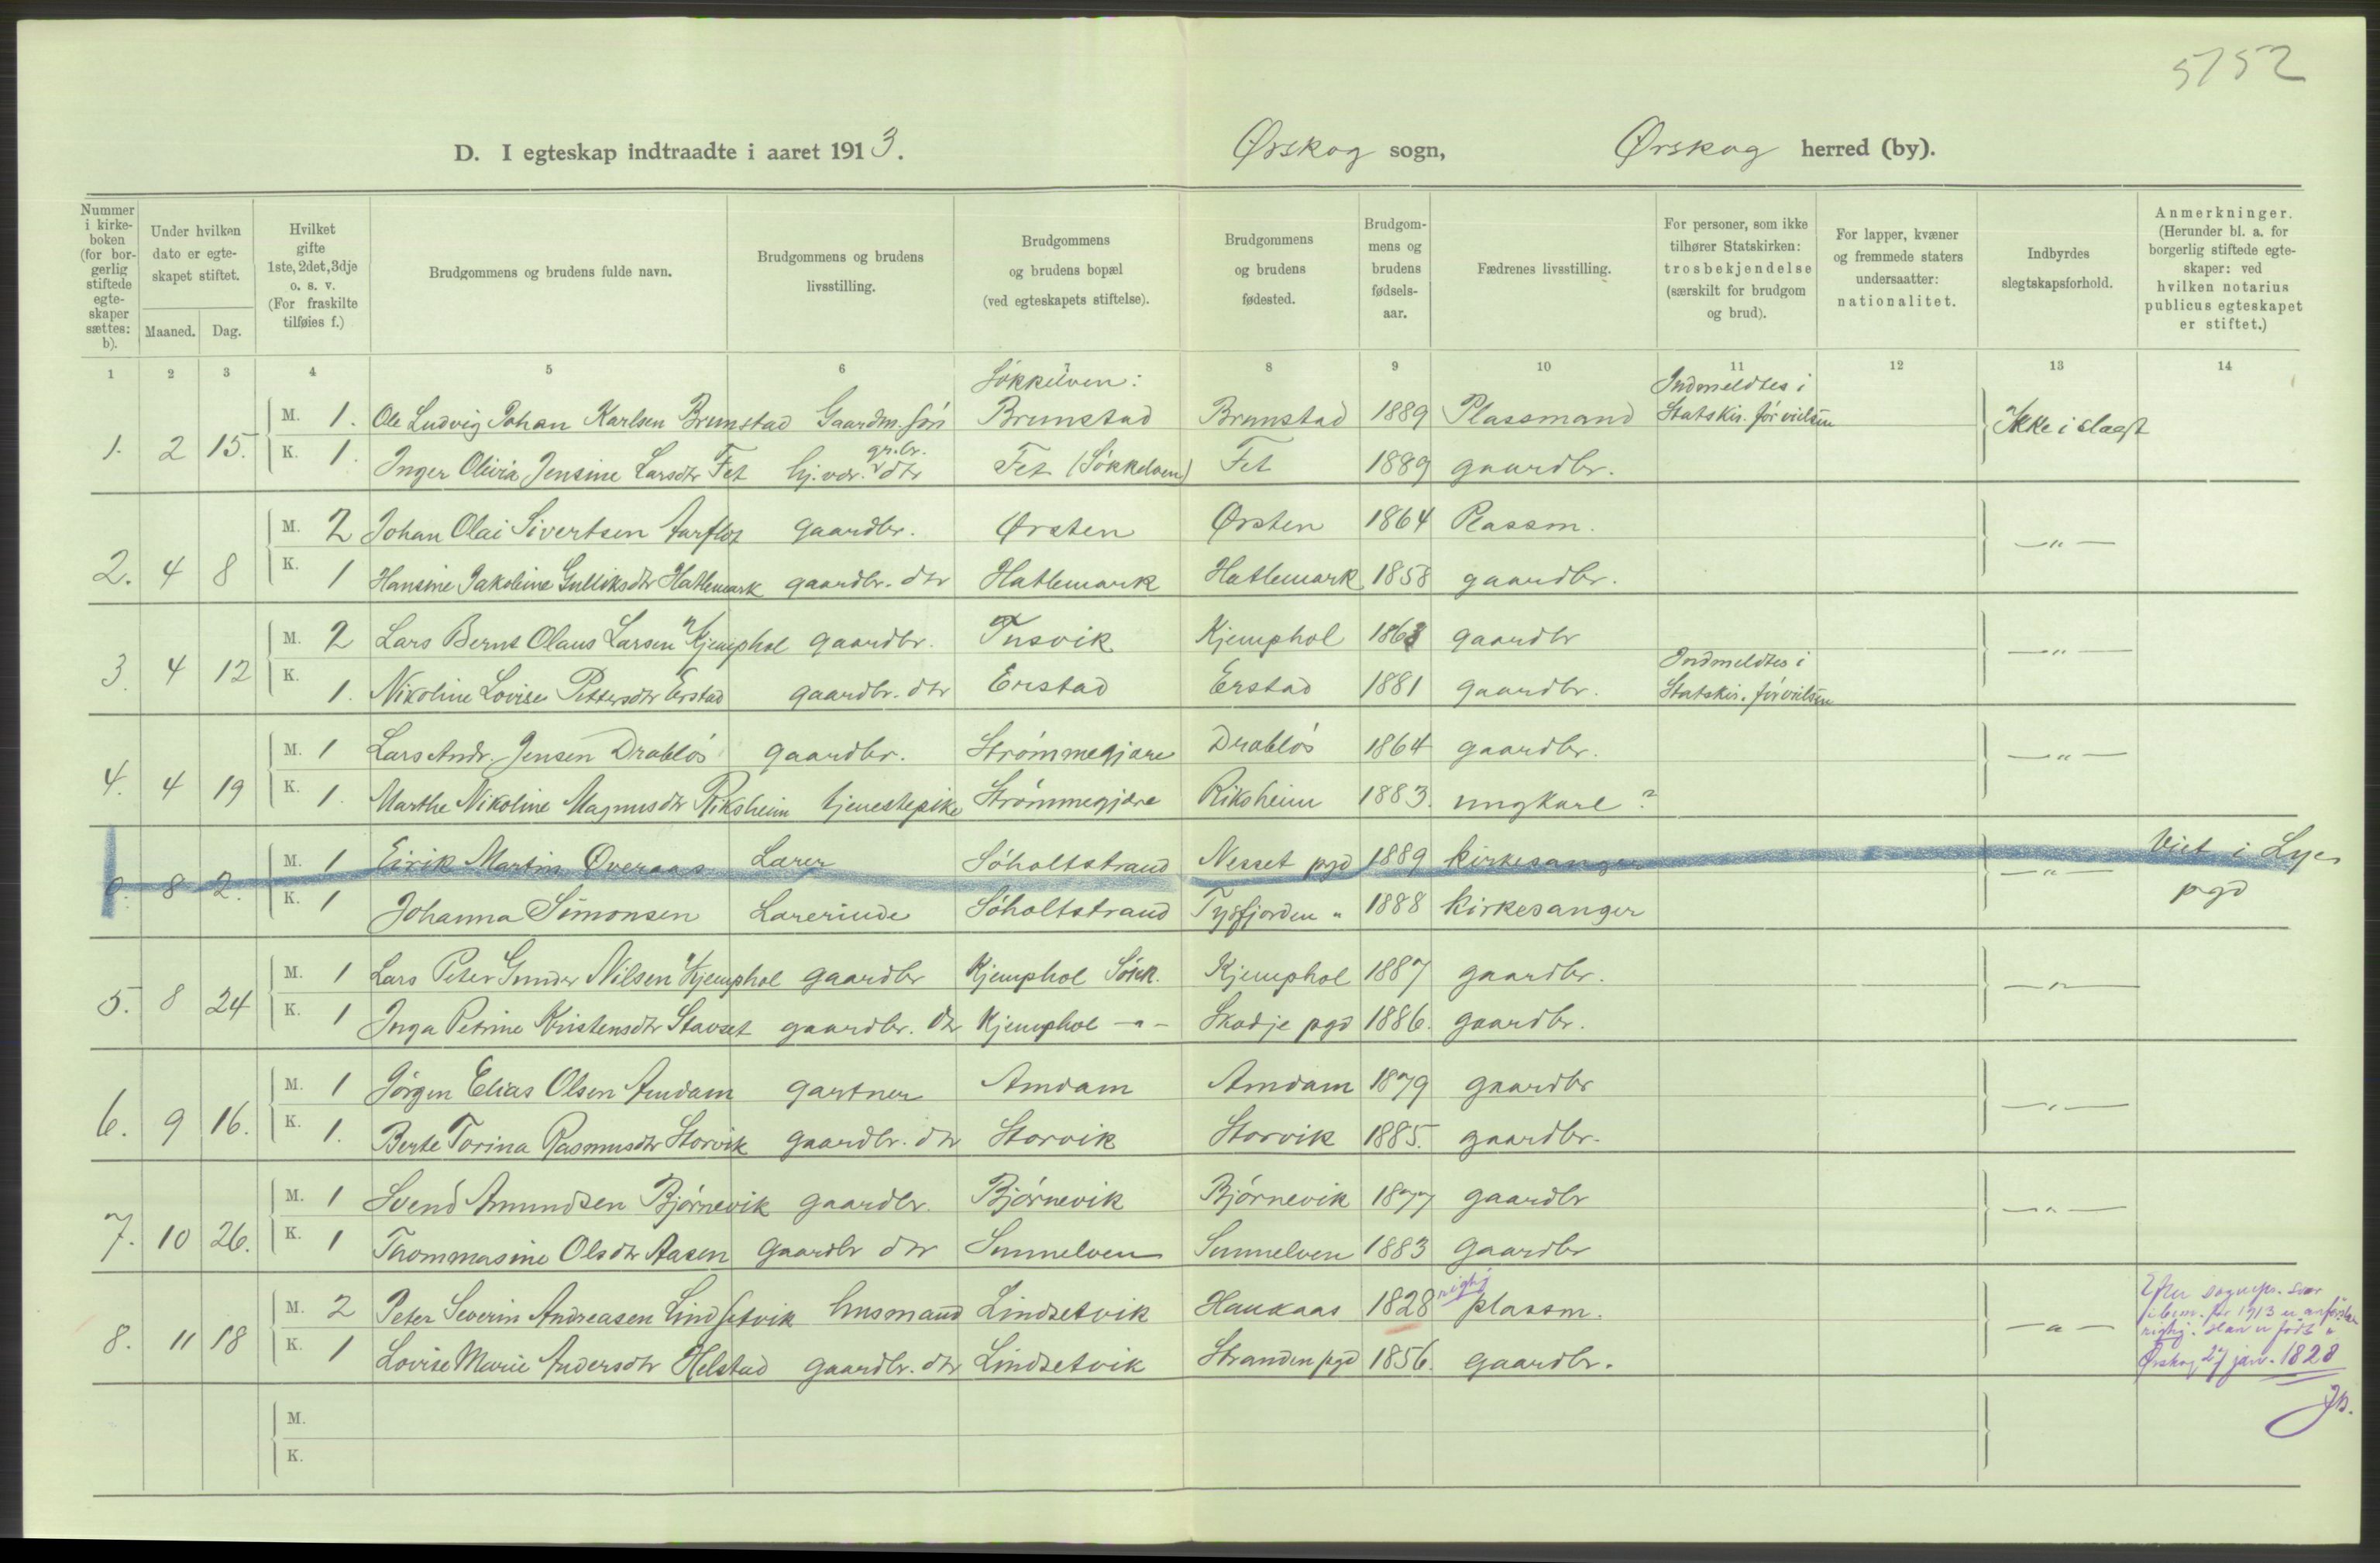 5752
D. I egteskap indtraadte i aaret 1913. Ørskog sogn, Ørskog herred (by).
Nummer i kirke-boken (for bor-gerlig stiftede egte-skaper sættes: b).
Under hvilken dato er egte-skapet stiftet.
Maaned. Dag.
Hvilket gifte 1ste, 2det, 3dje o. s. v. (For fraskilte tilføies f.)
Brudgommens og brudens fulde navn.
Brudgommens og brudens livsstilling.
Brudgommens og brudens bopæl (ved egteskapets stiftelse).
Brudgommens og brudens fødested.
Brudgom-mens og brudens fødsels-aar.
Fædrenes livsstilling.
For personer, som ikke tilhører Statskirken: trosbekjendelse (særskilt for brudgom og brud).
For lapper, kvæner og fremmede staters undersaatter: nationalitet.
Indbyrdes slegtskapsforhold.
Anmerkninger. (Herunder bl. a. for borgerlig stiftede egte-skaper: ved hvilken notarius publicus egteskapet er stiftet.)
1 2 3 4 5 6 8 9 10 11 12 13 14
Søkkelven: Indmeldtes i
1. 2 15. M. 1. Ole Ludvig Johan Karlsen Brunstad Gaardm. søn Brunstad Brunstad 1889 Plassmand Statskir. før vielsen Ikke i slegt
K. 1. Inger Olivia Jensine Larsdtr Fet hj. vær. gr.br. dtr Fet (Søkkelven) Fet 1889 gaardbr.
2. 4 8 M. 2 Johan Olai Sivertsen Aarflot gaardbr. Ørsten Ørsten 1864 Plassm. —"—
K. 1 Hansine Jakobine Gulliksdtr Hatlemark gaardbr. dtr Hatlemark Hatlemark 1858 gaardbr.
3. 4 12 M. 2 Lars Bernt Olaus Larsen Kjemphol gaardbr. Tusvik Kjemphol 1863 gaardbr —"—
Indmeldtes i
K. 1. Nikoline Lovise Pettersdtr Erstad gaardbr. dtr Erstad Erstad 1881 gaardbr. Statskir. før vielsen
4. 4 19 M. 1 Lars Andr. Jensen Drabløs gaardbr. Strømmegjære Drabløs 1864 gaardbr. —"—
K. 1. Marthe Nikoline Magnusdtr Riksheim tjenestepike Strømmegjære Riksheim 1883. ungkarl?
0. 8 2. M. 1 Eirik Martin Øveraas Lærer Søholtstrand Nesset pgd 1889 kirkesanger —"— Viet i Lye
K. 1 Johanna Simonsen Lærerinde Søholtstrand Tysfjorden " 1888 kirkesanger pgd
5. 8 24 M. 1 Lars Peter Gunder Nilsen Kjemphol gaardbr Kjemphol Søkk. Kjemphol 1887 gaardbr. —"—
K. 1 Inga Petrine Kristensdtr Stavset gaardbr. dtr Kjemphol —"— Skodje pgd 1886. gaardbr.
6. 9 16. M. 1 Jørgen Elias Olsen Amdam gartner Amdam Amdam 1879 gaardbr —"—
K. 1. Berte Torina Rasmusdtr Storvik gaardbr. dtr Storvik Storvik 1885. gaardbr.
7. 10 26. M. 1 Svend Amundsen Bjørnevik gaardbr. Bjørnevik Bjørnevik 1877 gaardbr —"—
K. 1 Thommasine Olsdtr Aasen Gaardbr dtr Sunnelven Sunnelven 1883 Gaardbr
8. 11 18 M. 2 Peter Severin Andreasen Lindsetvik husmand Lindsetvik Haukaas 1828 rigtig plassm. —"—
K. 1 Lovise Marie Andersdtr Helstad gaardbr. dtr Lindsetvik Stranden pgd 1856. gaardbr.
Efter sognepr. svar
for 1913 er anførslen
rigtig. Han er født i
Ørskog 27 jan. 1828
M.
K.